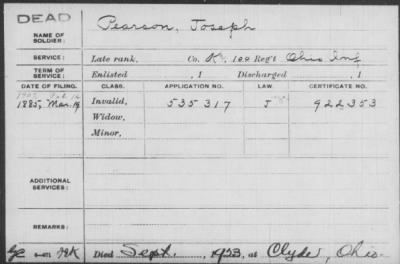 DEAD
NAME OF SOLDIER: Pearson, Joseph
SERVICE: Late rank, Co. K, 100 Reg't Ohio Inf
TERM OF SERVICE: Enlisted , 1 Discharged , 1
DATE OF FILING. CLASS. APPLICATION NO. LAW. CERTIFICATE NO.
1885, Mar. Invalid, 535 317 J 922 353
Widow,
Minor,
ADDITIONAL SERVICES:
REMARKS:
Died Sept. , 1923, at Clyde, Ohio